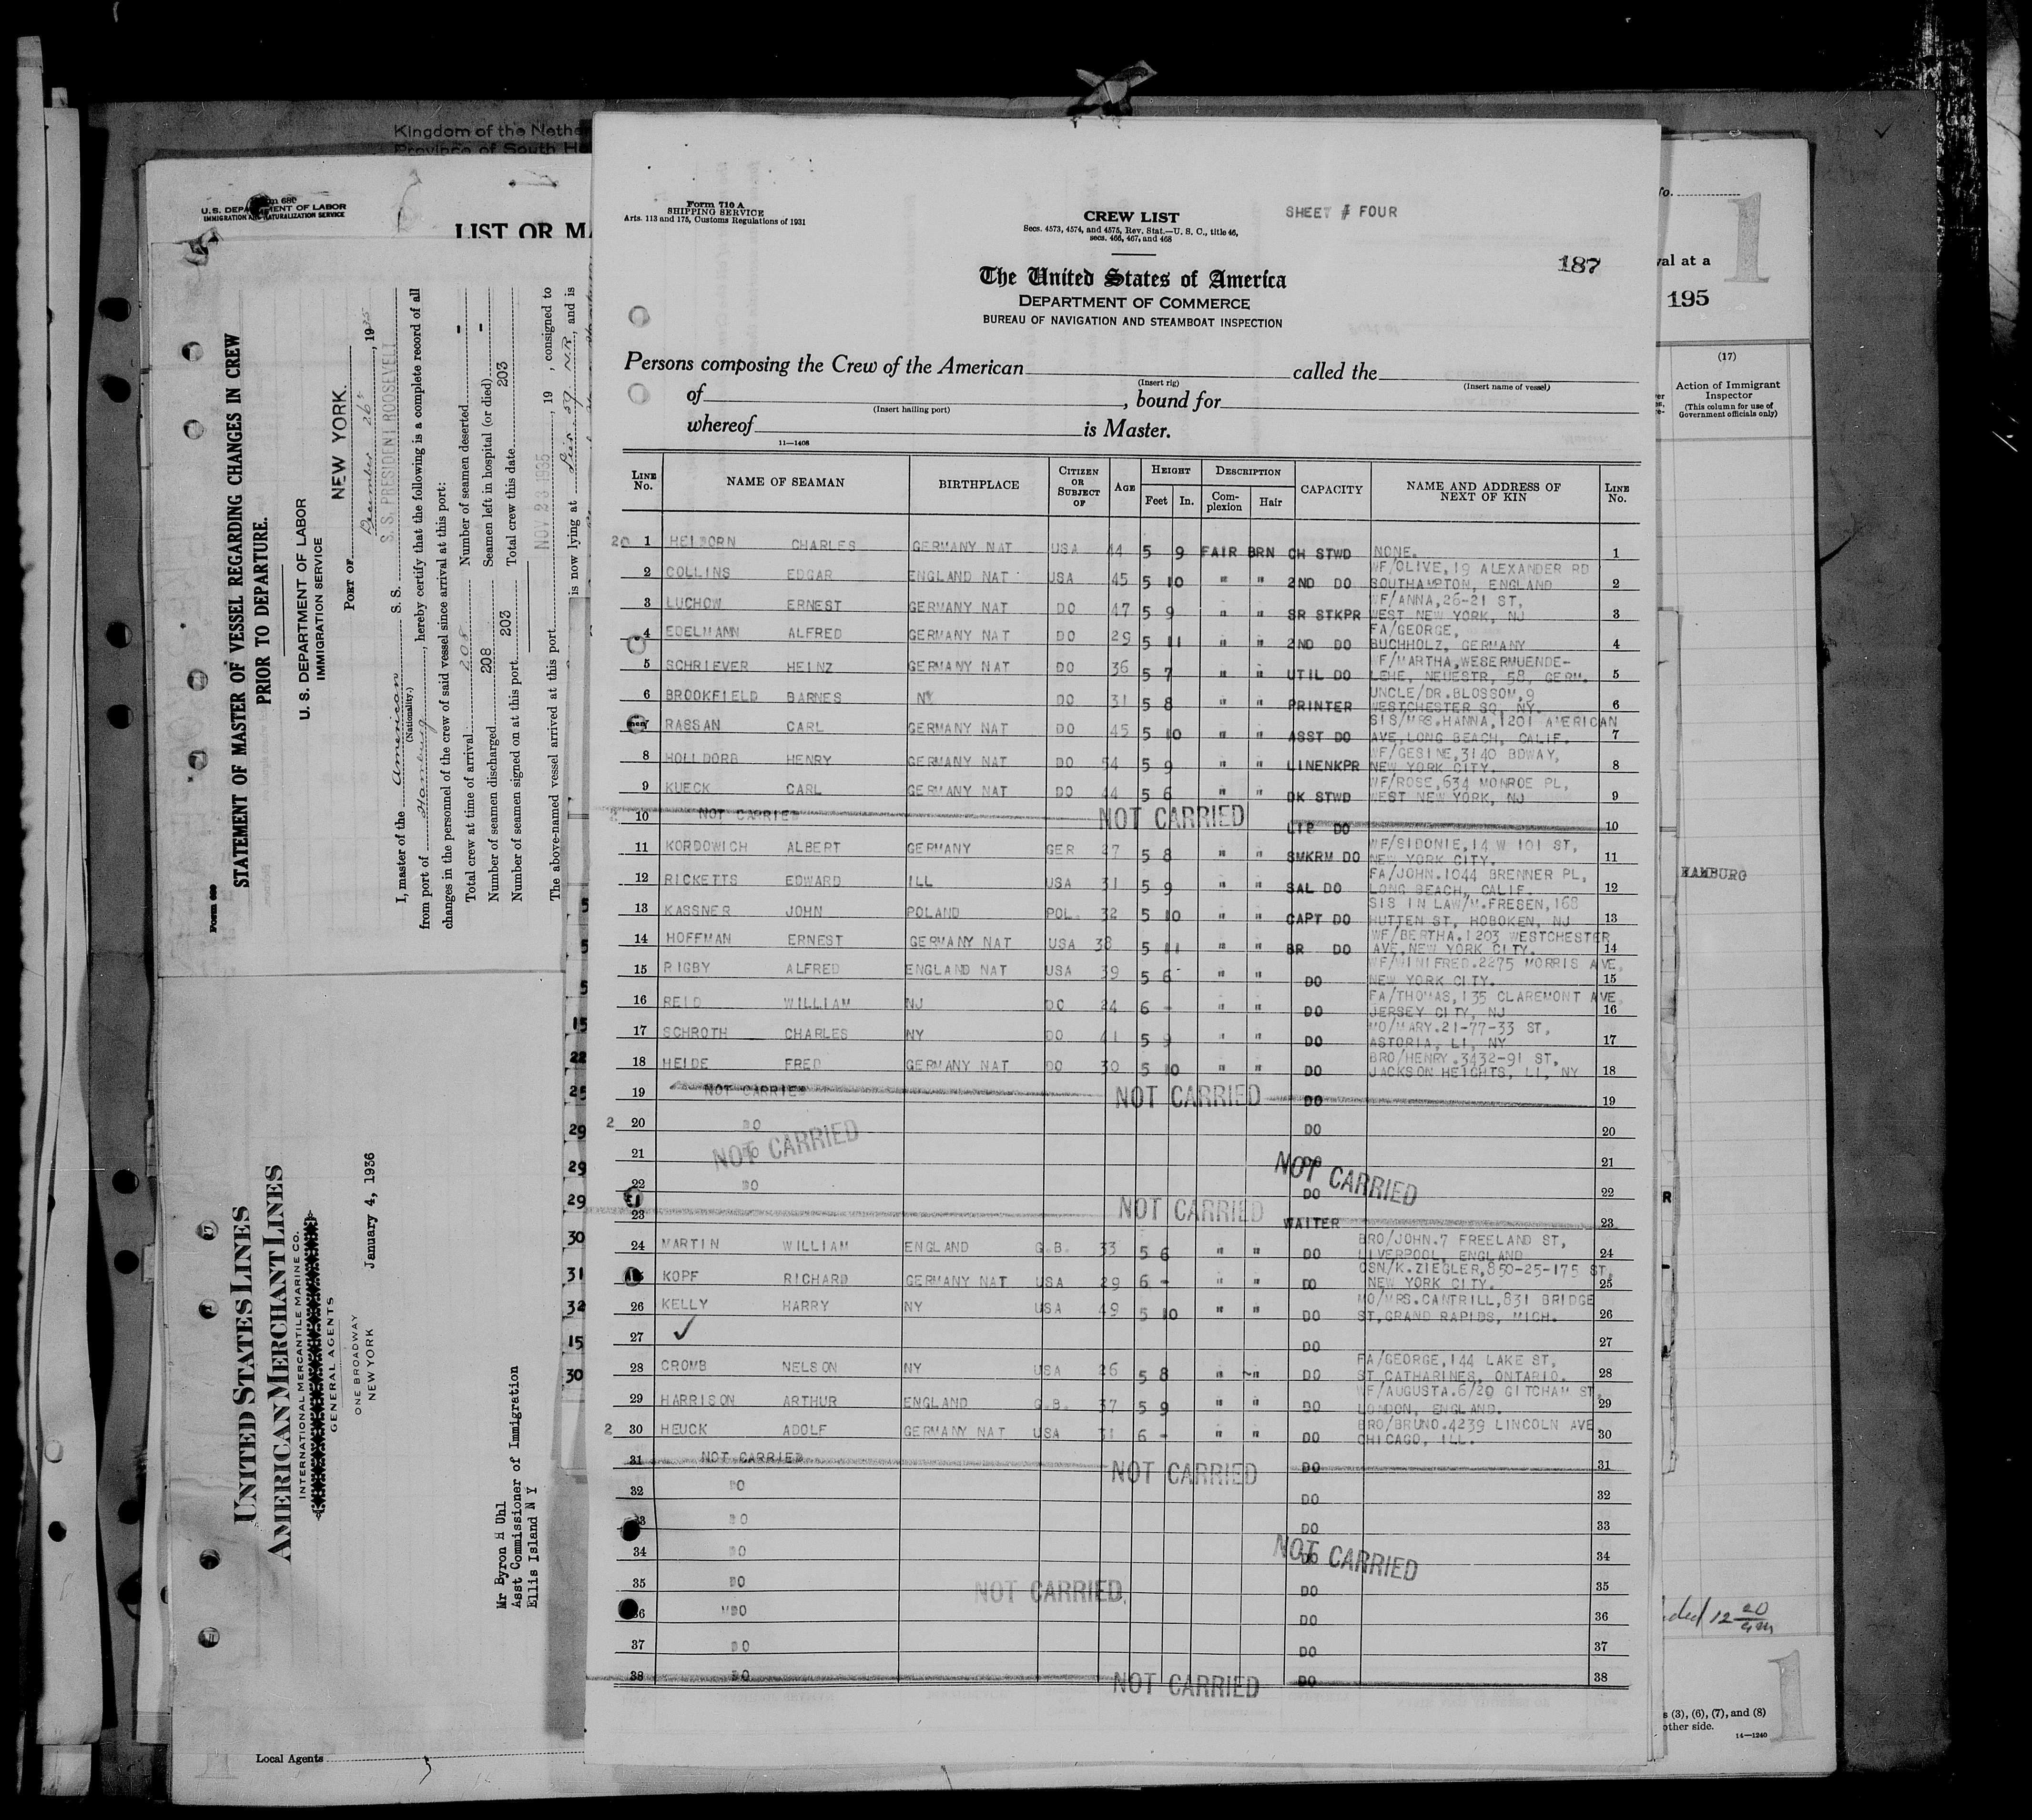 Kingdom of the Nethe
Province of South H
Form 680
U.S. DEPARTMENT OF LABOR
IMMIGRATION AND NATURALIZATION SERVICE
LIST OR MA
Form 689
STATEMENT OF MASTER OF VESSEL REGARDING CHANGES IN CREW
PRIOR TO DEPARTURE.
U. S. DEPARTMENT OF LABOR
IMMIGRATION SERVICE
PORT OF NEW YORK.
December 26, 1935
S. S. PRESIDENT ROOSEVELT
I, master of the American S. S.
(Nationality.)
from port of Hamburg, hereby certify that the following is a complete record of all
changes in the personnel of the crew of said vessel since arrival at this port:
Total crew at time of arrival 208 Number of seamen deserted -
Number of seamen discharged 208 Seamen left in hospital (or died) -
Number of seamen signed on at this port 203 Total crew this date 203
NOV 23 1935
The above-named vessel arrived at this port , 19 , consigned to
is now lying at Pier 59 N.R., and is
UNITED STATES LINES
AMERICAN MERCHANT LINES
INTERNATIONAL MERCANTILE MARINE CO.
GENERAL AGENTS
ONE BROADWAY
NEW YORK January 4, 1936
Mr Byron H Uhl
Asst Commissioner of Immigration
Ellis Island N Y
Local Agents
5
5
5
15
22
25
29
29
29
30
31
32
15
30
Form 710 A
SHIPPING SERVICE
Arts. 113 and 175, Customs Regulations of 1931
CREW LIST
Secs. 4573, 4574, and 4575, Rev. Stat.—U. S. C., title 46,
secs. 466, 467, and 468
SHEET # FOUR
187
The United States of America
DEPARTMENT OF COMMERCE
BUREAU OF NAVIGATION AND STEAMBOAT INSPECTION
Persons composing the Crew of the American called the
(Insert rig) (Insert name of vessel)
of , bound for
(Insert hailing port)
whereof is Master.
11—1408
LINE No. NAME OF SEAMAN BIRTHPLACE CITIZEN OR SUBJECT OF AGE HEIGHT Feet In. DESCRIPTION Complexion Hair CAPACITY NAME AND ADDRESS OF NEXT OF KIN LINE No.
20 1 HELBORN CHARLES GERMANY NAT USA 44 5 9 FAIR BRN CH STWD NONE. 1
2 COLLINS EDGAR ENGLAND NAT USA 45 5 10 " " 2ND DO WF/OLIVE, 19 ALEXANDER RD
SOUTHAMPTON, ENGLAND 2
3 LUCHOW ERNEST GERMANY NAT DO 47 5 9 " " SR STKPR WF/ANNA, 26-21 ST,
WEST NEW YORK, NJ 3
4 EDELMANN ALFRED GERMANY NAT DO 29 5 11 " " 2ND DO FA/GEORGE,
BUCHHOLZ, GERMANY 4
5 SCHRIEVER HEINZ GERMANY NAT DO 36 5 7 " " UTIL DO WF/MARTHA, WESERMUENDE-
LEHE, NEUESTR, 58, GERM. 5
6 BROOKFIELD BARNES NY DO 31 5 8 " " PRINTER UNCLE/DR.BLOSSOM, 9
WESTCHESTER SQ, NY. 6
RASSAN CARL GERMANY NAT DO 45 5 10 " " ASST DO SIS/MRS.HANNA, 1201 AMERICAN
AVE, LONG BEACH, CALIF. 7
8 HOLLDORB HENRY GERMANY NAT DO 54 5 9 " " LINENKPR WF/GESINE, 3140 BDWAY,
NEW YORK CITY. 8
9 KUECK CARL GERMANY NAT DO 44 5 6 " " DK STWD WF/ROSE, 634 MONROE PL,
WEST NEW YORK, NJ 9
2 10 NOT CARRIED NOT CARRIED DO 10
11 KORDOWICH ALBERT GERMANY GER 27 5 8 " " SMKRM DO WF/SIDONIE, 14 W 101 ST,
NEW YORK CITY. 11
12 RICKETTS EDWARD ILL USA 31 5 9 " " SAL DO FA/JOHN. 1044 BRENNER PL,
LONG BEACH, CALIF. 12
13 KASSNER JOHN POLAND POL. 32 5 10 " " CAPT DO SIS IN LAW/M.FRESEN, 168
HUTTEN ST, HOBOKEN, NJ 13
14 HOFFMAN ERNEST GERMANY NAT USA 38 5 11 " " BR DO WF/BERTHA. 1203 WESTCHESTER
AVE, NEW YORK CITY. 14
15 RIGBY ALFRED ENGLAND NAT USA 39 5 6 " " DO WF/WINIFRED. 2275 MORRIS AVE,
NEW YORK CITY. 15
16 REID WILLIAM NJ DO 24 6 - " " DO FA/THOMAS, 135 CLAREMONT AVE,
JERSEY CITY, NJ 16
17 SCHROTH CHARLES NY DO 41 5 9 " " DO MO/MARY. 21-77-33 ST,
ASTORIA, LI, NY 17
18 HEIDE FRED GERMANY NAT DO 30 5 10 " " DO BRO/HENRY. 3432-91 ST,
JACKSON HEIGHTS, LI, NY 18
19 NOT CARRIED NOT CARRIED DO 19
2 20 DO DO 20
21 DO NOT CARRIED DO 21
22 DO DO NOT CARRIED 22
23 NOT CARRIED WAITER 23
24 MARTIN WILLIAM ENGLAND G.B. 33 5 6 " " DO BRO/JOHN. 7 FREELAND ST,
LIVERPOOL, ENGLAND 24
KOPF RICHARD GERMANY NAT USA 29 6 - " " DO CSN/K.ZIEGLER, 850-25-175 ST,
NEW YORK CITY. 25
26 KELLY HARRY NY USA 49 5 10 " " DO MO/MRS.CANTRILL, 831 BRIDGE
ST, GRAND RAPIDS, MICH. 26
27 DO 27
28 CROMB NELSON NY USA 26 5 8 " " DO FA/GEORGE, 144 LAKE ST,
ST CATHARINES, ONTARIO. 28
29 HARRISON ARTHUR ENGLAND G.B. 37 5 9 " " DO WF/AUGUSTA. 6/29 GITCHAM ST,
LONDON, ENGLAND. 29
2 30 HEUCK ADOLF GERMANY NAT USA 31 6 - " " DO BRO/BRUNO. 4239 LINCOLN AVE
CHICAGO, ILL. 30
31 NOT CARRIED NOT CARRIED DO 31
32 DO DO 32
33 DO DO 33
34 DO DO NOT CARRIED 34
35 DO NOT CARRIED DO 35
36 DO DO 36
37 DO DO 37
38 DO NOT CARRIED DO 38
To
1
val at a
195
(17)
Action of Immigrant
Inspector
(This column for use of
Government officials only)
HAMBURG
R
ded 12 20 am
s (3), (6), (7), and (8)
other side.
14—1240
1